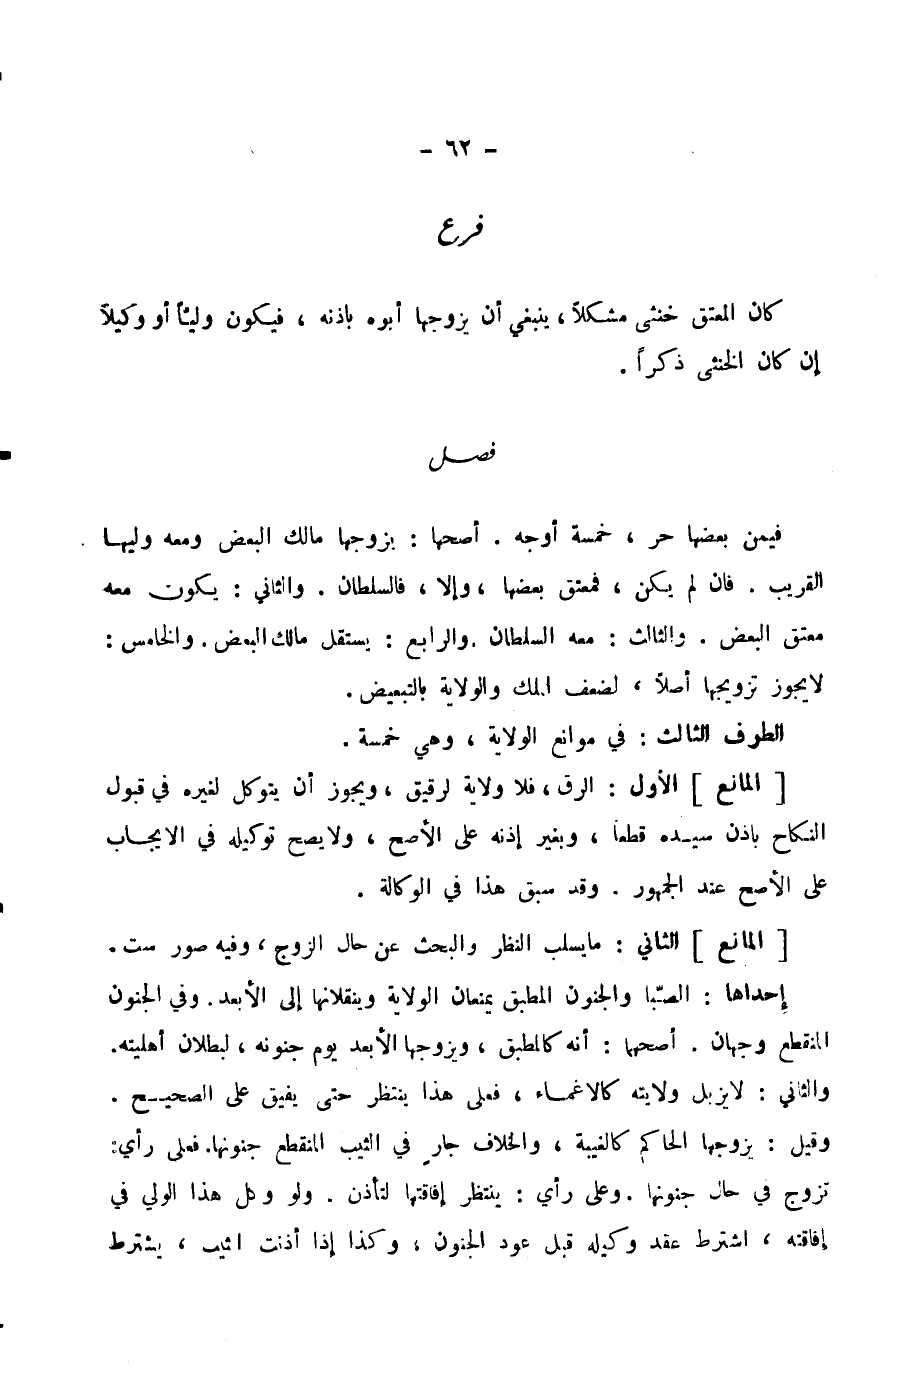 - ٦٢ -
فرع
كان المعتق خنثى مشكلاً ، ينبغي أن يزوجها أبوه باذنه ، فيكون وليّاً أو وكيلاً
إن كان الخنثى ذكراً .
فصل
فيمن بعضها حر ، خمسة أوجه . أصحها : يزوجها مالك البعض ومعه وليها
القريب . فان لم يكن ، فمعتق بعضها ، وإلا ، فالسلطان . والثاني : يكون معه
معتق البعض . والثالث : معه السلطان . والرابع : يستقل مالك البعض . والخامس :
لايجوز تزويجها أصلاً ، لضعف الملك والولاية بالتبعيض .
الطرف الثالث : في موانع الولاية ، وهي خمسة .
[ المانع ] الأول : الرق ، فلا ولاية لرقيق ، ويجوز أن يتوكل لغيره في قبول
النكاح باذن سيده قطعاً ، وبغير إذنه على الأصح ، ولايصح توكيله في الايجاب
على الأصح عند الجمهور . وقد سبق هذا في الوكالة .
[ المانع ] الثاني : مايسلب النظر والبحث عن حال الزوج ، وفيه صور ست .
إحداها : الصّبا والجنون المطبق يمنعان الولاية وينقلانها إلى الأبعد . وفي الجنون
المنقطع وجهان . أصحها : أنه كالمطبق ، ويزوجها الأبعد يوم جنونه ، لبطلان أهليته .
والثاني : لايزيل ولايته كالاغماء ، فعلى هذا ينتظر حتى يفيق على الصحيح .
وقيل : يزوجها الحاكم كالغيبة ، والخلاف جارٍ في الثيب المنقطع جنونها . فعلى رأي :
تزوج في حال جنونها . وعلى رأي : ينتظر إفاقتها لتأذن . ولو وكل هذا الولي في
إفاقته ، اشترط عقد وكيله قبل عود الجنون ، وكذا إذا أذنت الثيب ، يشترط